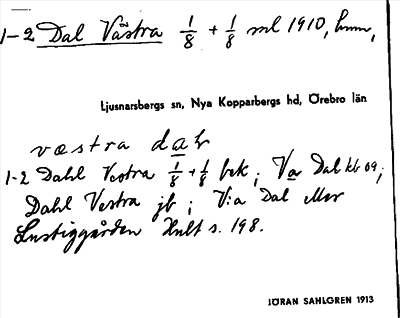 1-2 Dal Västra 1/8 + 1/8 ml 1910, hmn,
Ljusnarsbergs sn, Nya Kopparbergs hd, Örebro län
væstra dab
1-2 Dahl Vestra 1/8 + 1/8 bek; Va Dal kb 09;
Dahl Vestra jb; V:a Dal Mor
Lustiggården Hult s. 198.
JÖRAN SAHLGREN 1913